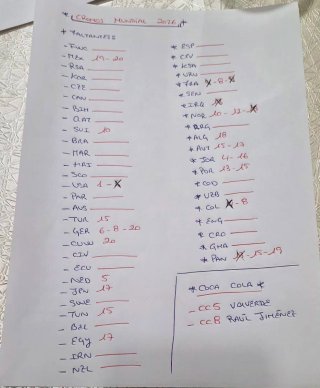 * CROMOS MUNDIAL 2026 *
* FALTANTES:
- FWC
- MEX 19-20
- RSA
- KOR
- CZE
- CAN
- BIH
- QAT
- SUI 10
- BRA
- MAR
- HAI
- SCO
- USA 1-
- PAR
- AUS
- TUR 15
- GER 6-8-20
- CUW 20
- CIV
- ECU
- NED 5
- JPN 17
- SWE
- TUN 15
- BEL
- EGY 17
- IRN
- NZL
* ESP
* CPV
* KSA
* URU
* FRA -8-
* SEN
* IRQ
* NOR 10-12-
* ARG
* ALG 18
* AUT 15-17
* JOR 4-16
* POR 13-15
* COD
* UZB
* COL -8
* ENG
* CRO
* GHA
* PAN -15-19
* COCA COLA *
- CC5 VALVERDE
- CC8 RAÚL JIMÉNEZ